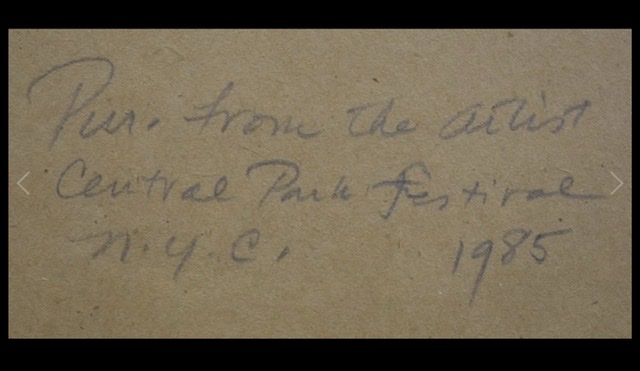 Pur. from the artist
Central Park Festival
N.Y.C. 1985